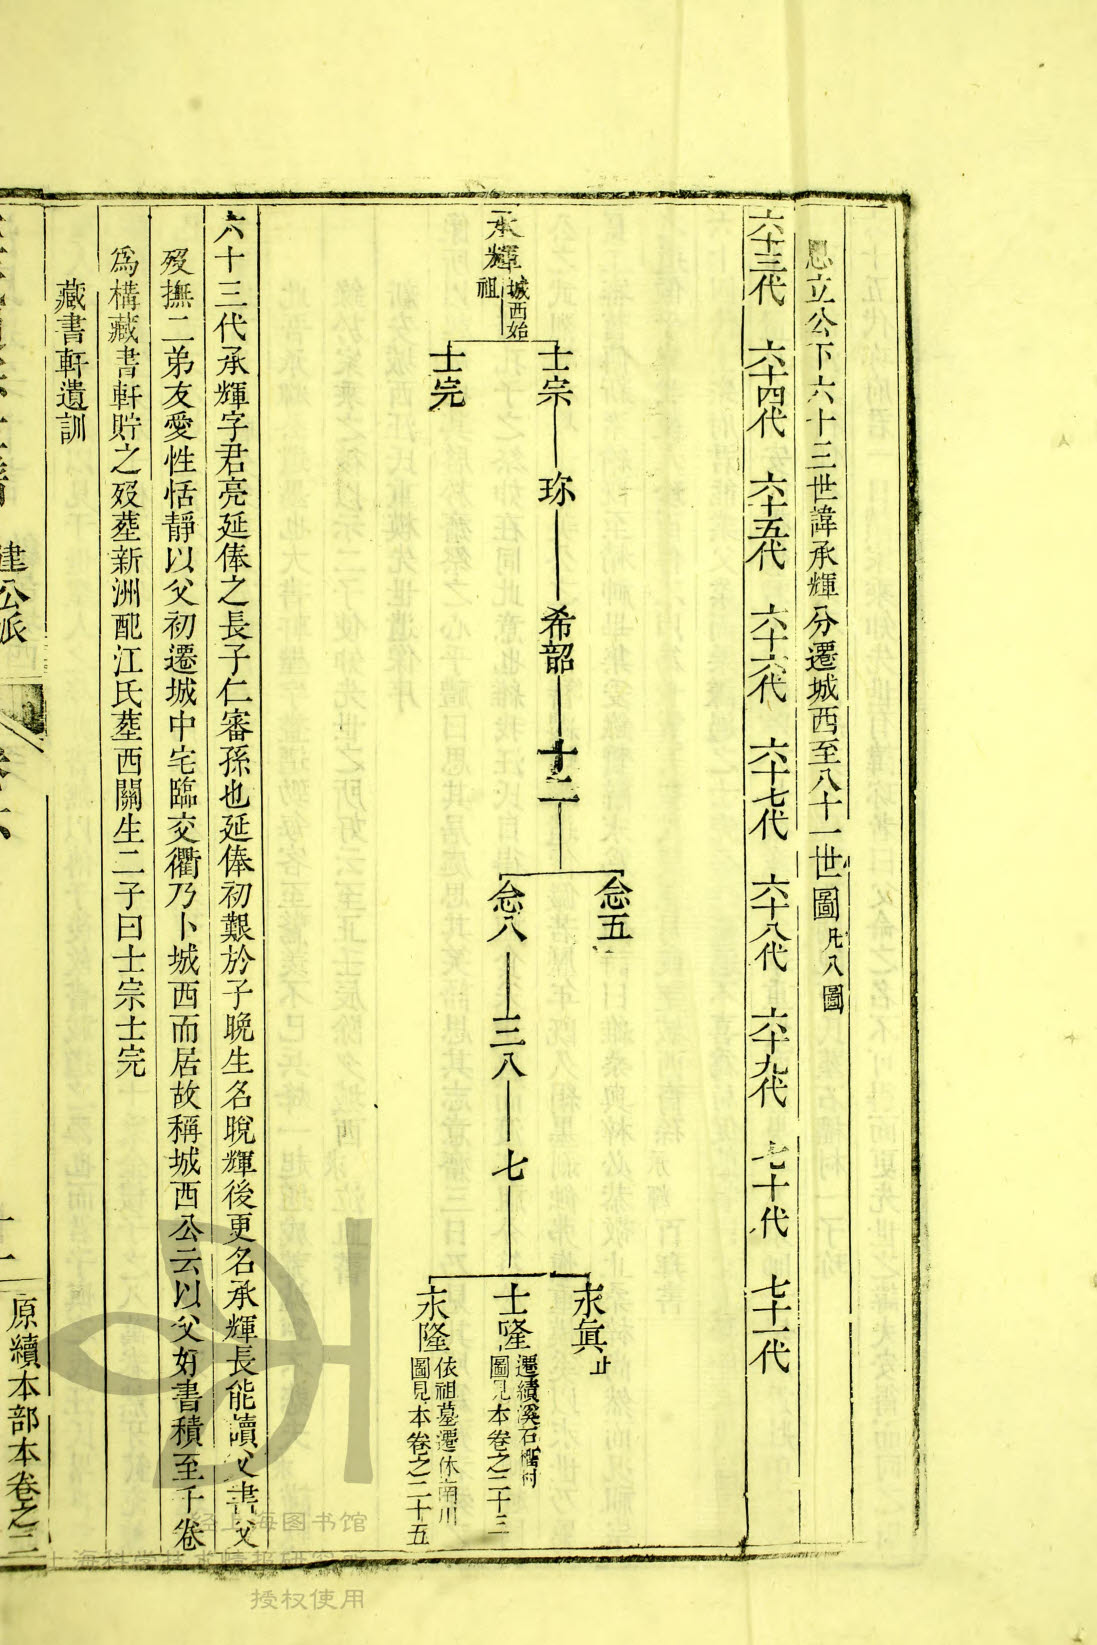 思立公下六十三世諱承輝分遷城西至八十一世圖凡八圖
六十三代 六十四代 六十五代 六十六代 六十七代 六十八代 六十九代 七十代 七十一代
承輝
城西始
祖
士宗 珎 希韶 十二
士完
念五
念八 三八 七
永真止
士隆
遷績溪石榴村
圖見本卷之二十三
永隆
依祖墓遷休南川
圖見本卷之二十五
六十三代承輝字君亮延俸之長子仁審孫也延俸初艱於子晚生名晚輝後更名承輝長能讀父書父
歿撫二弟友愛性恬靜以父初遷城中宅臨交衢乃卜城西而居故稱城西公云以父好書積至千卷
為構藏書軒貯之歿塟新洲配江氏塟西關生二子曰士宗士完
藏書軒遺訓
建公派
原續本部本卷之二
经上海图书馆
上海科学技术情报研究所
授权使用